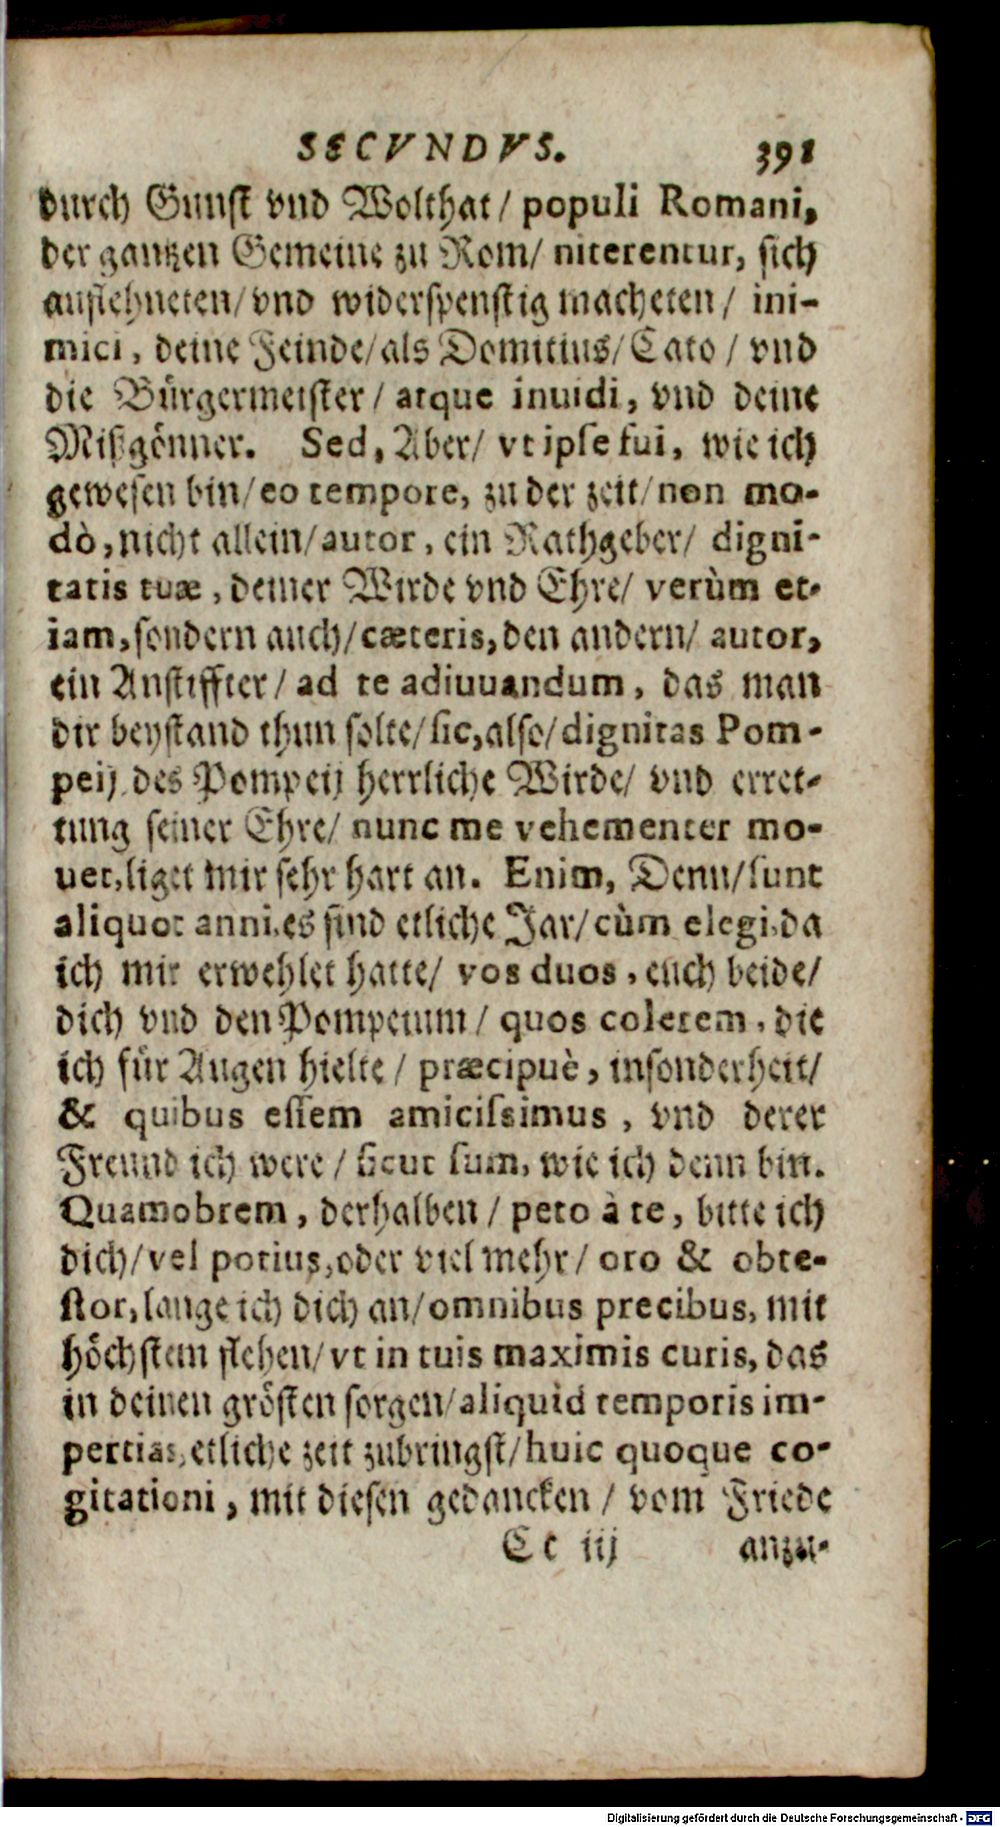 SECVNDVS. 391
durch Gunst vnd Wolthat / populi Romani,
der gantzen Gemeine zu Rom / niterentur, sich
auflehneten / vnd widerspenstig macheten / ini-
mici, deine Feinde / als Domitius / Cato / vnd
die Bürgermeister / atque inuidi, vnd deine
Mißgönner. Sed, Aber / vt ipse fui, wie ich
gewesen bin / eo tempore, zu der zeit / non mo-
dò, nicht allein / autor, ein Rathgeber / digni-
tatis tuæ, deiner Wirde vnd Ehre / verùm et-
iam, sondern auch / cæteris, den andern / autor,
ein Anstiffter / ad te adiuuandum, das man
dir beystand thun solte / sic, also / dignitas Pom-
peij des Pompeij herrliche Wirde / vnd erret-
tung seiner Ehre / nunc me vehementer mo-
uet, liget mir sehr hart an. Enim, Denn / sunt
aliquot anni, es sind etliche Jar / cùm elegi, da
ich mir erwehlet hatte / vos duos, euch beide /
dich vnd den Pompeium / quos colerem, die
ich für Augen hielte / præcipuè, insonderheit /
& quibus essem amicissimus, vnd derer
Freund ich were / sicut sum, wie ich denn bin.
Quamobrem, derhalben / peto à te, bitte ich
dich / vel potius, oder viel mehr / oro & obte-
stor, lange ich dich an / omnibus precibus, mit
höchstem flehen / vt in tuis maximis curis, das
in deinen grösten sorgen / aliquid temporis im-
pertias, etliche zeit zubringst / huic quoque co-
gitationi, mit diesen gedancken / vom Friede
Cc iij anzu-
Digitalisierung gefördert durch die Deutsche Forschungsgemeinschaft - DFG